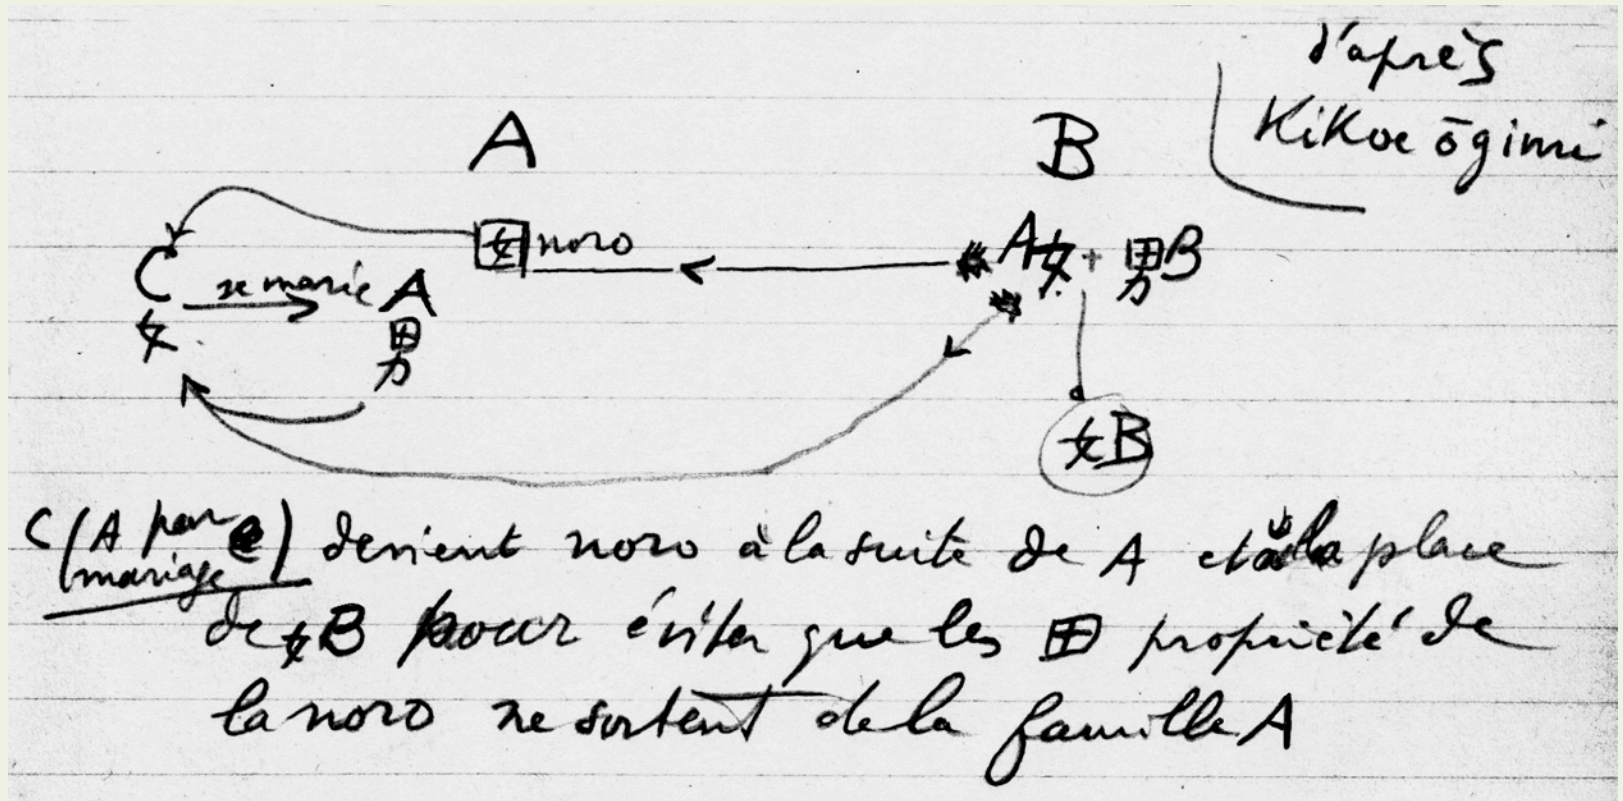 d'après
Kikoe ōgimi
A
B
女 noro
A女 + 男B
C se marie A
女
男
女B
C (A par
mariage) devient noro à la suite de A et à la place
de 女B pour éviter que les 田 propriété de
la noro ne sortent de la famille A